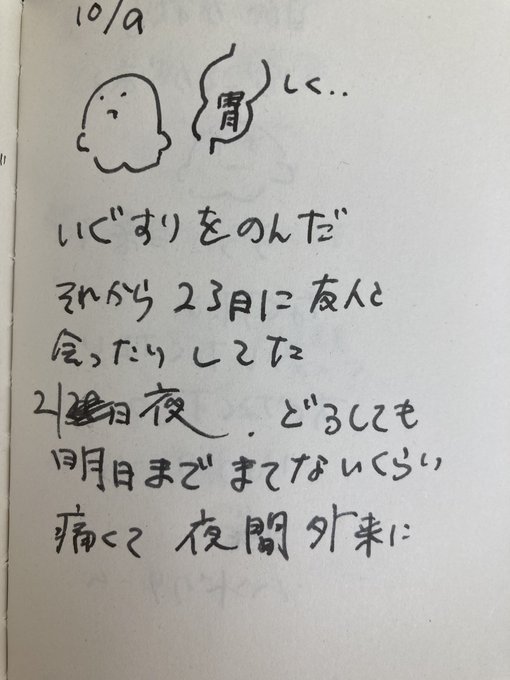 10/9
胃
しく..
いぐすりをのんだ
それから 23日に 友人と
会ったりしてた
日夜. どうしても
明日まで まてないくらい
痛くて 夜間外来に